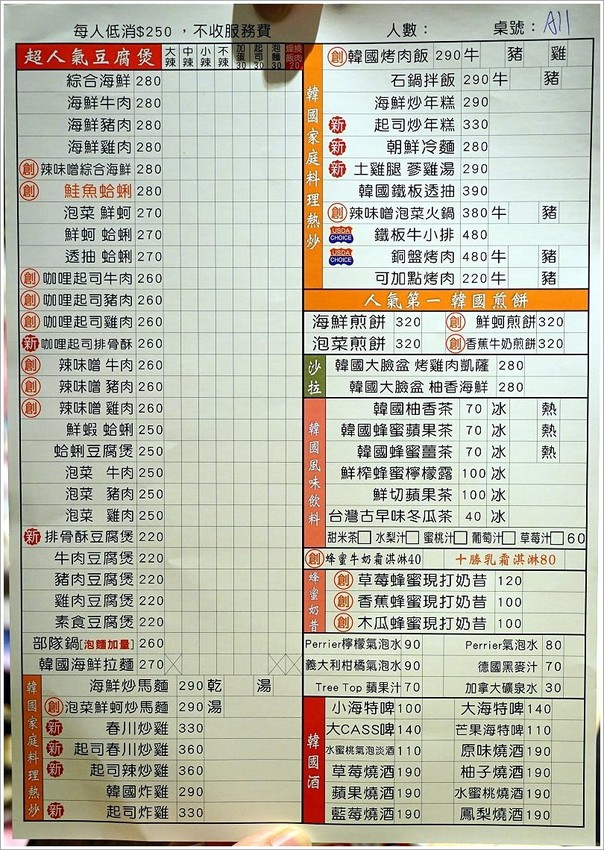 每人低消$250 ，不收服務費
人數：
桌號：A11
超人氣豆腐煲 大辣 中辣 小辣 不辣 加蛋30 起司30 泡麵30
綜合海鮮 280
海鮮牛肉 280
海鮮豬肉 280
海鮮雞肉 280
創 辣味噌綜合海鮮 280
創 鮭魚蛤蜊 280
泡菜 鮮蚵 270
鮮蚵 蛤蜊 270
透抽 蛤蜊 270
創 咖哩起司牛肉 260
創 咖哩起司豬肉 260
創 咖哩起司雞肉 260
新 咖哩起司排骨酥 260
創 辣味噌 牛肉 260
創 辣味噌 豬肉 260
創 辣味噌 雞肉 260
鮮蝦 蛤蜊 250
蛤蜊豆腐煲 250
泡菜 牛肉 250
泡菜 豬肉 250
泡菜 雞肉 250
新 排骨酥豆腐煲 220
牛肉豆腐煲 220
豬肉豆腐煲 220
雞肉豆腐煲 220
素食豆腐煲 220
部隊鍋[泡麵加量] 260
韓國海鮮拉麵 270
韓國家庭料理熱炒
海鮮炒馬麵 290 乾 湯
創 泡菜鮮蚵炒馬麵 290 湯
新 春川炒雞 330
新 起司春川炒雞 360
新 起司辣炒雞 360
韓國炸雞 290
新 起司炸雞 330
韓國家庭料理熱炒
創 韓國烤肉飯 290 牛 豬 雞
石鍋拌飯 290 牛 豬
海鮮炒年糕 290
新 起司炒年糕 330
新 朝鮮冷麵 280
新 土雞腿 蔘雞湯 290
韓國鐵板透抽 390
創 辣味噌泡菜火鍋 380 牛 豬
USDA CHOICE 鐵板牛小排 480
USDA CHOICE 銅盤烤肉 480 牛 豬
可加點烤肉 220 牛 豬
人氣第一 韓國煎餅
海鮮煎餅 320 創 鮮蚵煎餅 320
泡菜煎餅 320 創 香蕉牛奶煎餅 320
沙拉
韓國大臉盆 烤雞肉凱薩 280
韓國大臉盆 柚香海鮮 280
韓國風味飲料
韓國柚香茶 70 冰 熱
韓國蜂蜜蘋果茶 70 冰 熱
韓國蜂蜜薑茶 70 冰 熱
鮮榨蜂蜜檸檬露 100 冰
鮮切蘋果茶 100 冰
台灣古早味冬瓜茶 40 冰
甜米茶□ 水梨汁□ 蜜桃汁□ 葡萄汁□ 草莓汁□ 60
創 蜂蜜牛奶霜淇淋40 十勝乳霜淇淋80
蜂蜜奶昔
創 草莓蜂蜜現打奶昔 120
創 香蕉蜂蜜現打奶昔 100
創 木瓜蜂蜜現打奶昔 100
Perrier檸檬氣泡水 90 Perrier氣泡水 80
義大利柑橘氣泡水 90 德國黑麥汁 70
Tree Top 蘋果汁 70 加拿大礦泉水 30
韓國酒
小海特啤 100 大海特啤 140
大CASS啤 140 芒果海特啤 110
水蜜桃氣泡淡酒 110 原味燒酒 190
草莓燒酒 190 柚子燒酒 190
蘋果燒酒 190 水蜜桃燒酒 190
藍莓燒酒 190 鳳梨燒酒 190